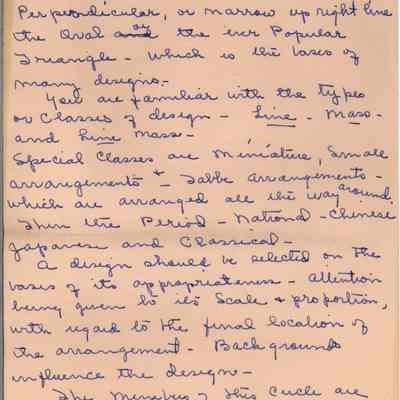 Perpendicular, or narrow up right line
the Oval and or the ever Popular
Triangle - which is the bases of
many designs.-
You are familiar with the types
or Classes of design - Line - Mass -
and Line Mass -
Special Classes are Miniature, Small
arrangements + - Table arrangements -
which are arranged all the way around
Then the Period - National - Chinese
Japanese and Classical -
A design should be selected on the
bases of its appropriateness - Attention
being given to its Scale + proportion,
with regard to the final location of
the arrangement - Backgrounds
influence the design -
The Members of this Circle are